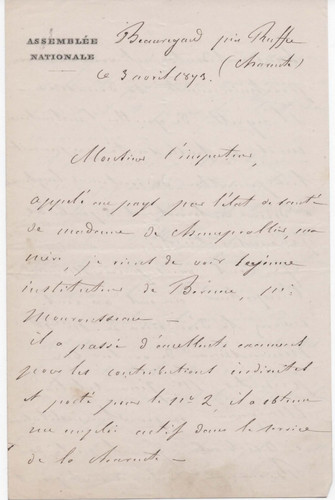 ASSEMBLÉE
NATIONALE
Beauregard près Ruffec
(Charente)
le 3 avril 1873.
Monsieur l'inspecteur,
appelé au pays par l'état de santé
de madame de Champvallier, ma
mère, je viens de voir le jeune
instituteur de Bioussac, Mr
il a passé d'excellents examens
pour les contributions indirectes
et porté pour le n° 2, il a obtenu
un emploi actif dans le service
de la Charente —